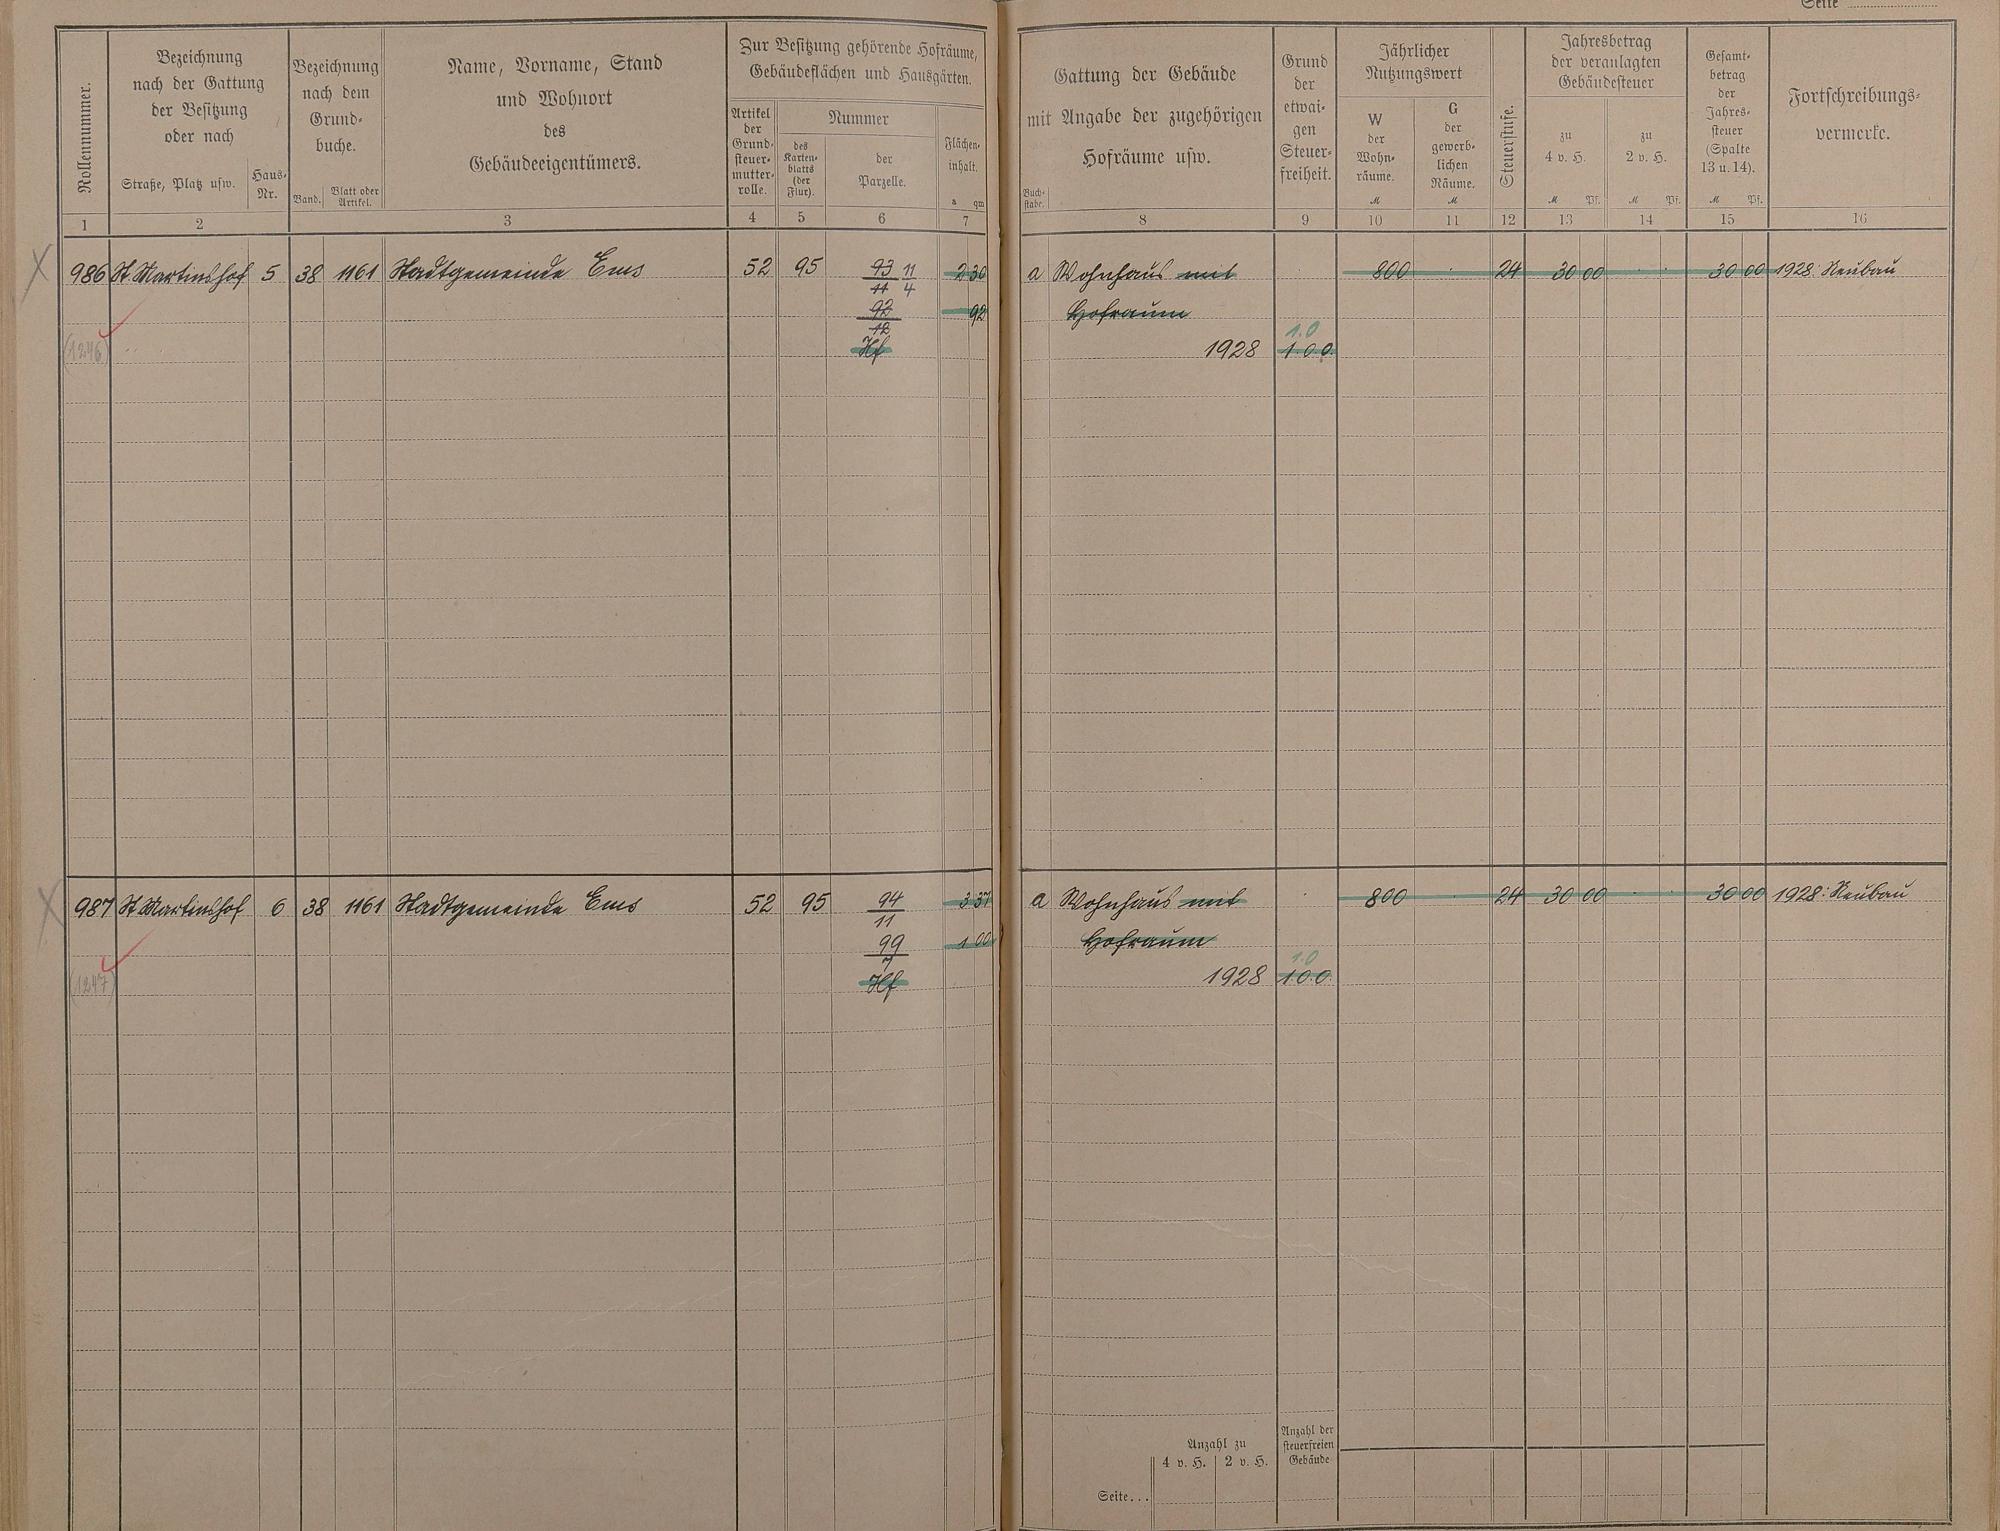 Seite
Rollennummer.
Bezeichnung
nach der Gattung
der Besitzung
oder nach
Straße, Platz usw.
Haus-
Nr.
Bezeichnung
nach dem
Grund-
buche.
Band.
Blatt oder
Artikel.
Name, Vorname, Stand
und Wohnort
des
Gebäudeeigentümers.
Zur Besitzung gehörende Hofräume,
Gebäudeflächen und Hausgärten.
Artikel
der
Grund-
steuer-
mutter-
rolle.
Nummer
des
Karten-
blatts
(der
Flur).
der
Parzelle.
Flächen-
inhalt.
a qm
Gattung der Gebäude
mit Angabe der zugehörigen
Hofräume usw.
Buch-
stabe.
Grund
der
etwai-
gen
Steuer-
freiheit.
Jährlicher
Nutzungswert
W
der
Wohn-
räume.
M
G
der
gewerb-
lichen
Räume.
M
Steuerstufe.
Jahresbetrag
der veranlagten
Gebäudesteuer
zu
4 v. H.
M Pf.
zu
2 v. H.
M Pf.
Gesamt-
betrag
der
Jahres-
steuer
(Spalte
13 u. 14).
M Pf.
Fortschreibungs-
vermerke.
1 2 3 4 5 6 7 8 9 10 11 12 13 14 15 16
986 St. Martinshof 5 38 1161 Stadtgemeinde Ems 52 95 93 11 2 30 a Wohnhaus mit 800 24 30 00 30 00 1928 Neubau
11 4
92 92 Hofraum
12
1.0
(1246) Hf 1928 1.0.0.
987 St Martinshof 6 38 1161 Stadtgemeinde Ems 52 95 94 3 37 a Wohnhaus mit 800 24 30 00 30 00 1928: Neubau
11
99 1 00 Hofraum
7
1.0
(1247) Hf 1928 1.0.0.
Anzahl zu
4 v. H. 2 v. H.
Anzahl der
steuerfreien
Gebäude
Seite...